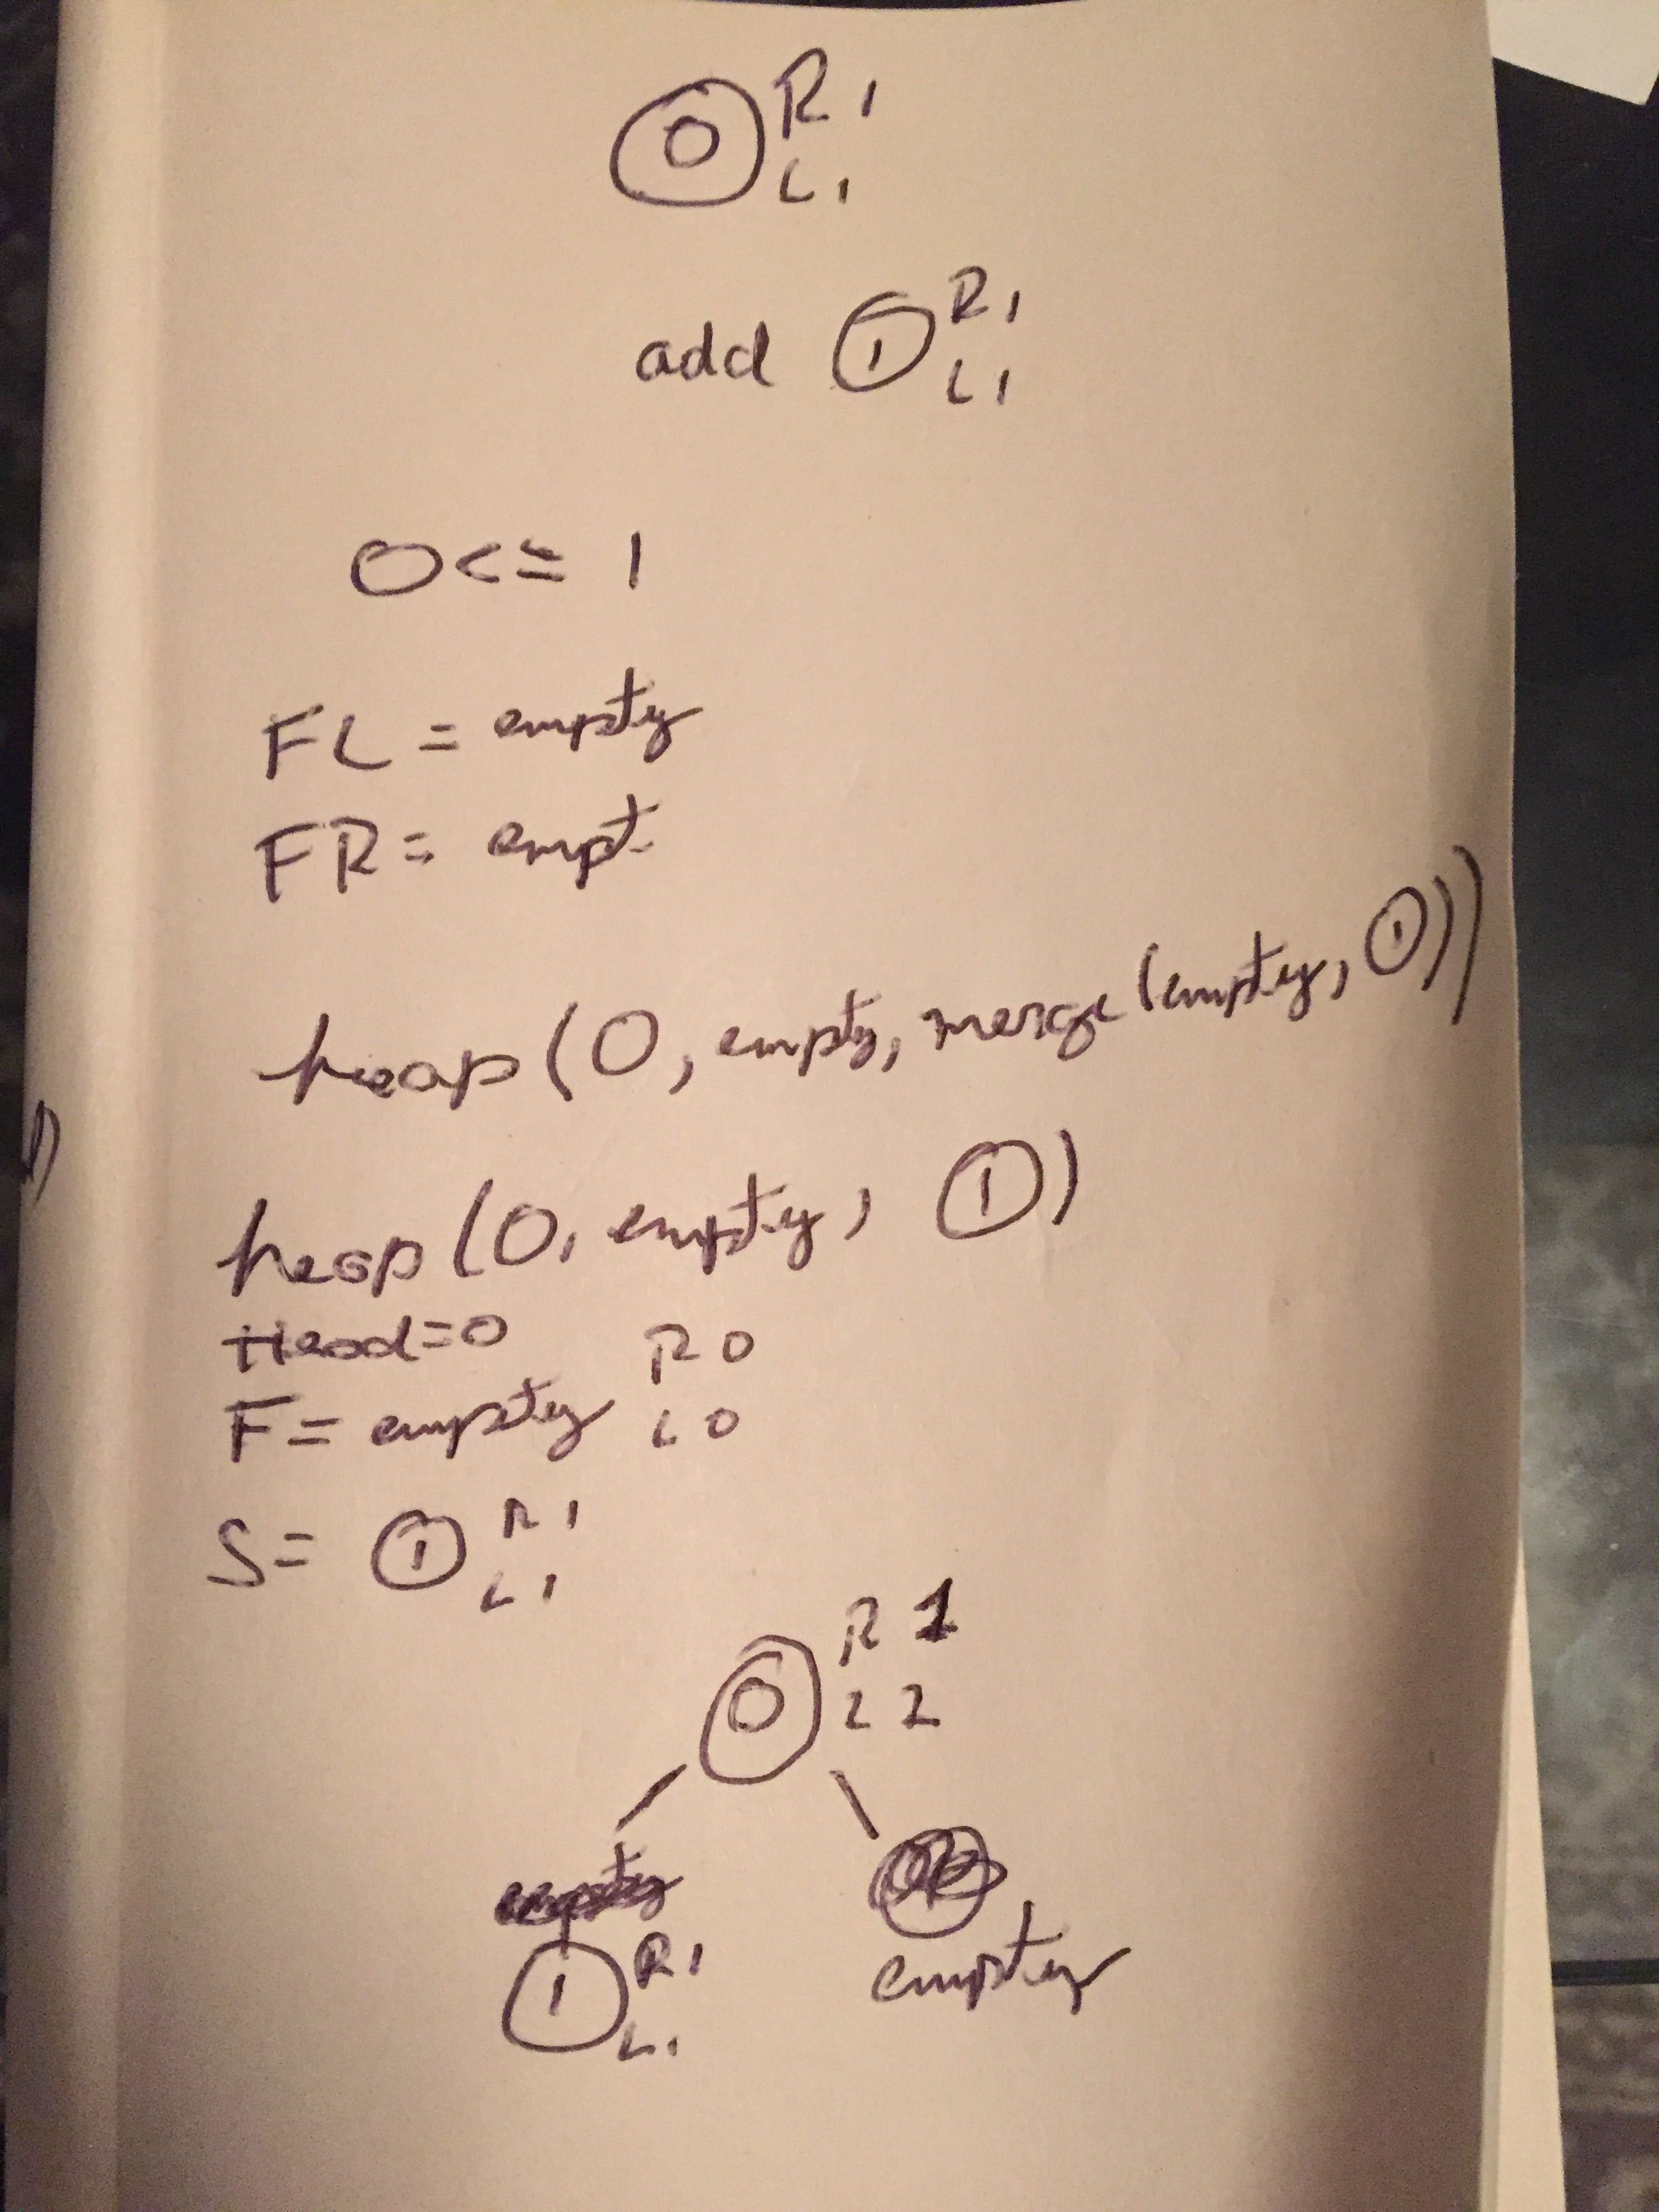 0 R 1
L 1
add 1 R 1
L 1
0 <= 1
FL = empty
FR = empt
heap (0, empty, merge (empty, 1))
heap (0, empty, 1)
Head=0 R 0
F= empty L 0
S= 1 R 1
L 1
0 R 1
L 2
empty
1 R 1
L 1
empty